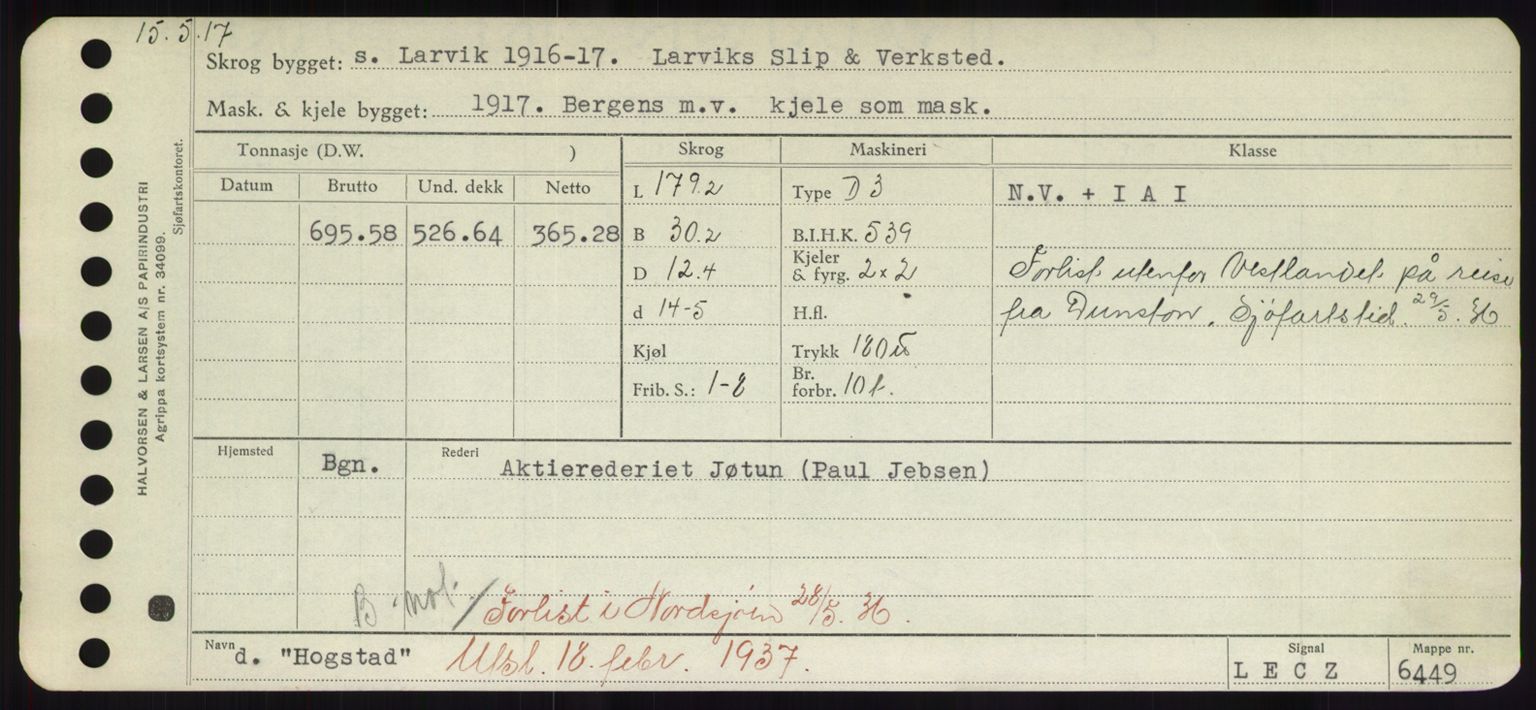 15.5.17
Skrog bygget: s. Larvik 1916-17. Larviks Slip & Verksted.
Mask. & kjele bygget: 1917. Bergens m.v. kjele som mask.
HALVORSEN & LARSEN A/S PAPIRINDUSTRI
Agrippa kortsystem nr. 34099.
Sjøfartskontoret.
Tonnasje (D.W. ) Skrog Maskineri Klasse
Datum Brutto Und. dekk Netto
L 179.2 Type D 3 N.V. + I A I
695.58 526.64 365.28 B 30.2 B.I.H.K. 539
D 12.4 Kjeler & fyrg. 2x2 Forlist utenfor Vestlandet på reise
d 14-5 H.fl. fra Dunston. Sjöfartstid. 29/5.36
Kjøl Trykk 180
Frib. S.: 1-8 Br. forbr. 10 t.
Hjemsted Bgn. Rederi Aktierederiet Jøtun (Paul Jebsen)
B. not. / Forlist i Nordsjöen 28/5.36.
Navn d. "Hogstad" Utsl. 18. febr. 1937. Signal L E C Z Mappe nr. 6449